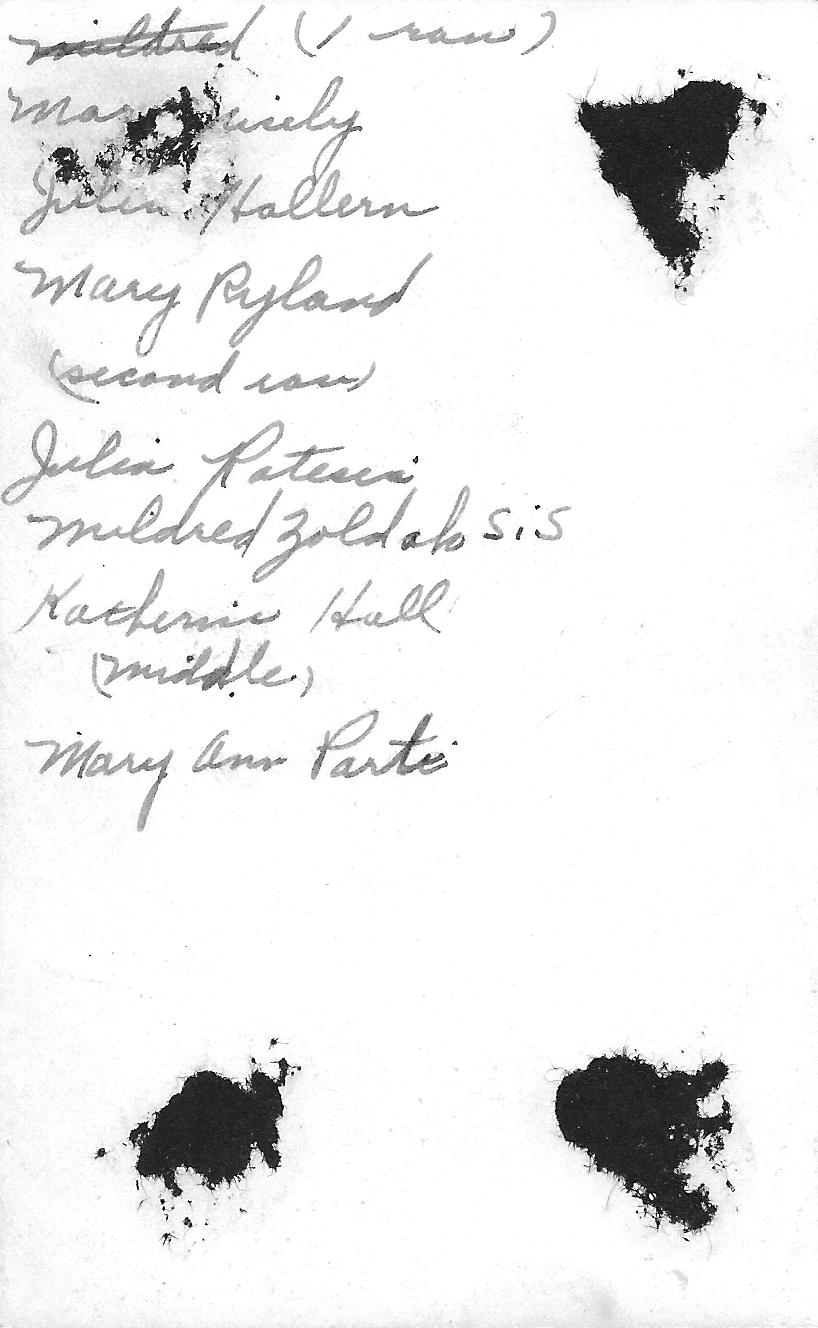 Mildred (1 row)
Mary
Julia Hallern
Mary Ryland
(second row)
Julia
Mildred Zoldak SiS
Katherine Hall
(middle)
Mary Ann Parti